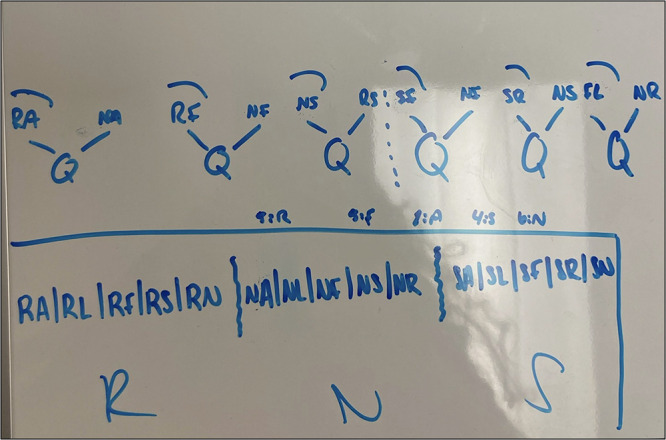 RA NA RF NF NS RS SF NF SR NS FL NR
Q Q Q Q Q Q
9:R 9:F 8:A 4:S 6:N
RA|RL|RF|RS|RN NA|NL|NF|NS|NR SA|SL|SF|SR|SN
R N S